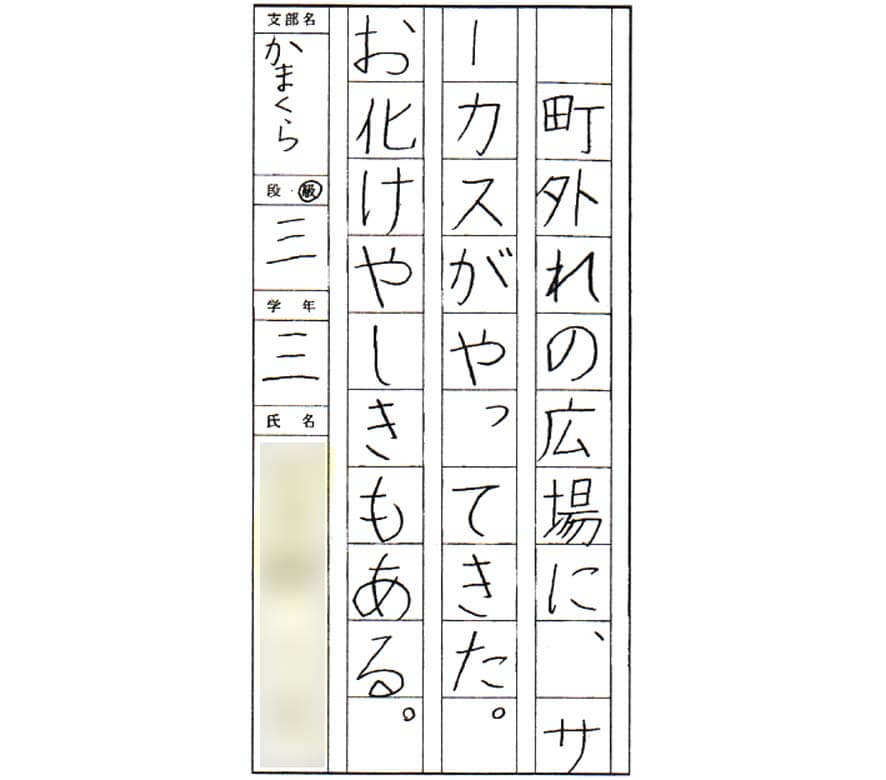 町外れの広場に、サ
ーカスがやってきた。
お化けやしきもある。
支部名
かまくら
段・級
三
学年
三
氏名